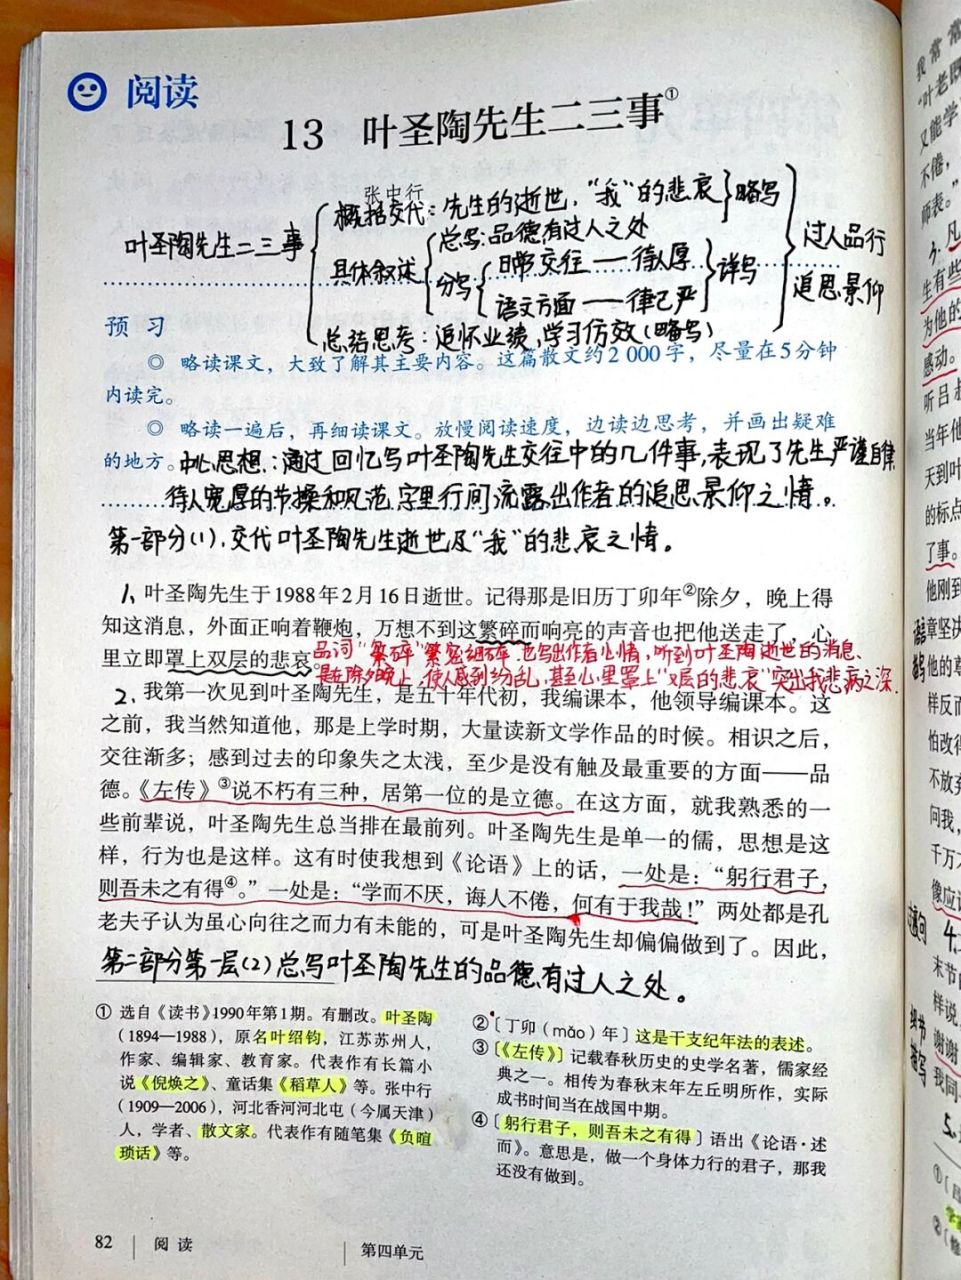 阅读
13 叶圣陶先生二三事①
张中行
叶圣陶先生二三事
概括交代：先生的逝世，“我”的悲哀
略写
具体叙述
总写：品德有过人之处
分写
日常交往——待人厚
语文方面——律己严
详写
总结思考：追怀业绩，学习仿效（略写）
过人品行
追思景仰
预习
◎ 略读课文，大致了解其主要内容。这篇散文约2 000字，尽量在5分钟
内读完。
◎ 略读一遍后，再细读课文。放慢阅读速度，边读边思考，并画出疑难
的地方。
中心思想：通过回忆写叶圣陶先生交往中的几件事，表现了先生严谨自律
待人宽厚的节操和风范，字里行间流露出作者的追思景仰之情。
第一部分(1)，交代叶圣陶先生逝世及“我”的悲哀之情。
1、叶圣陶先生于1988年2月16日逝世。记得那是旧历丁卯年②除夕，晚上得
知这消息，外面正响着鞭炮，万想不到这繁碎而响亮的声音也把他送走了，心
里立即罩上双层的悲哀。
品词“繁碎”繁密细碎，也写出作者心情，听到叶圣陶逝世的消息、
是在除夕晚上，使人感到纷乱，甚至心里罩上“双层的悲哀”突出我悲痛之深.
2、我第一次见到叶圣陶先生，是五十年代初，我编课本，他领导编课本。这
之前，我当然知道他，那是上学时期，大量读新文学作品的时候。相识之后，
交往渐多；感到过去的印象失之太浅，至少是没有触及最重要的方面——品
德。《左传》③说不朽有三种，居第一位的是立德。在这方面，就我熟悉的一
些前辈说，叶圣陶先生总当排在最前列。叶圣陶先生是单一的儒，思想是这
样，行为也是这样。这有时使我想到《论语》上的话，一处是：“躬行君子，
则吾未之有得④。”一处是：“学而不厌，诲人不倦，何有于我哉！”两处都是孔
老夫子认为虽心向往之而力有未能的，可是叶圣陶先生却偏偏做到了。因此，
第二部分第一层(2)总写叶圣陶先生的品德有过人之处。
① 选自《读书》1990年第1期。有删改。叶圣陶
（1894—1988），原名叶绍钧，江苏苏州人，
作家、编辑家、教育家。代表作有长篇小
说《倪焕之》、童话集《稻草人》等。张中行
（1909—2006），河北香河河北屯（今属天津）
人，学者、散文家。代表作有随笔集《负暄
琐话》等。
②〔丁卯（mǎo）年〕这是干支纪年法的表述。
③〔《左传》〕记载春秋历史的史学名著，儒家经
典之一。相传为春秋末年左丘明所作，实际
成书时间当在战国中期。
④〔躬行君子，则吾未之有得〕语出《论语·述
而》。意思是，做一个身体力行的君子，那我
还没有做到。
82 阅读
第四单元
我常常
“叶老既
又能学
不倦，
师表。”
3、凡
生有些
为他的
感动。
听吕叔
当年他
天到叶
的标点
了事。
他刚到
章坚决
他的尊
样反而
怕改得
不放弃
问我，
千万
像应该
过渡句
4、
末节的
样说，
谢谢
我同
细节
描写
5、